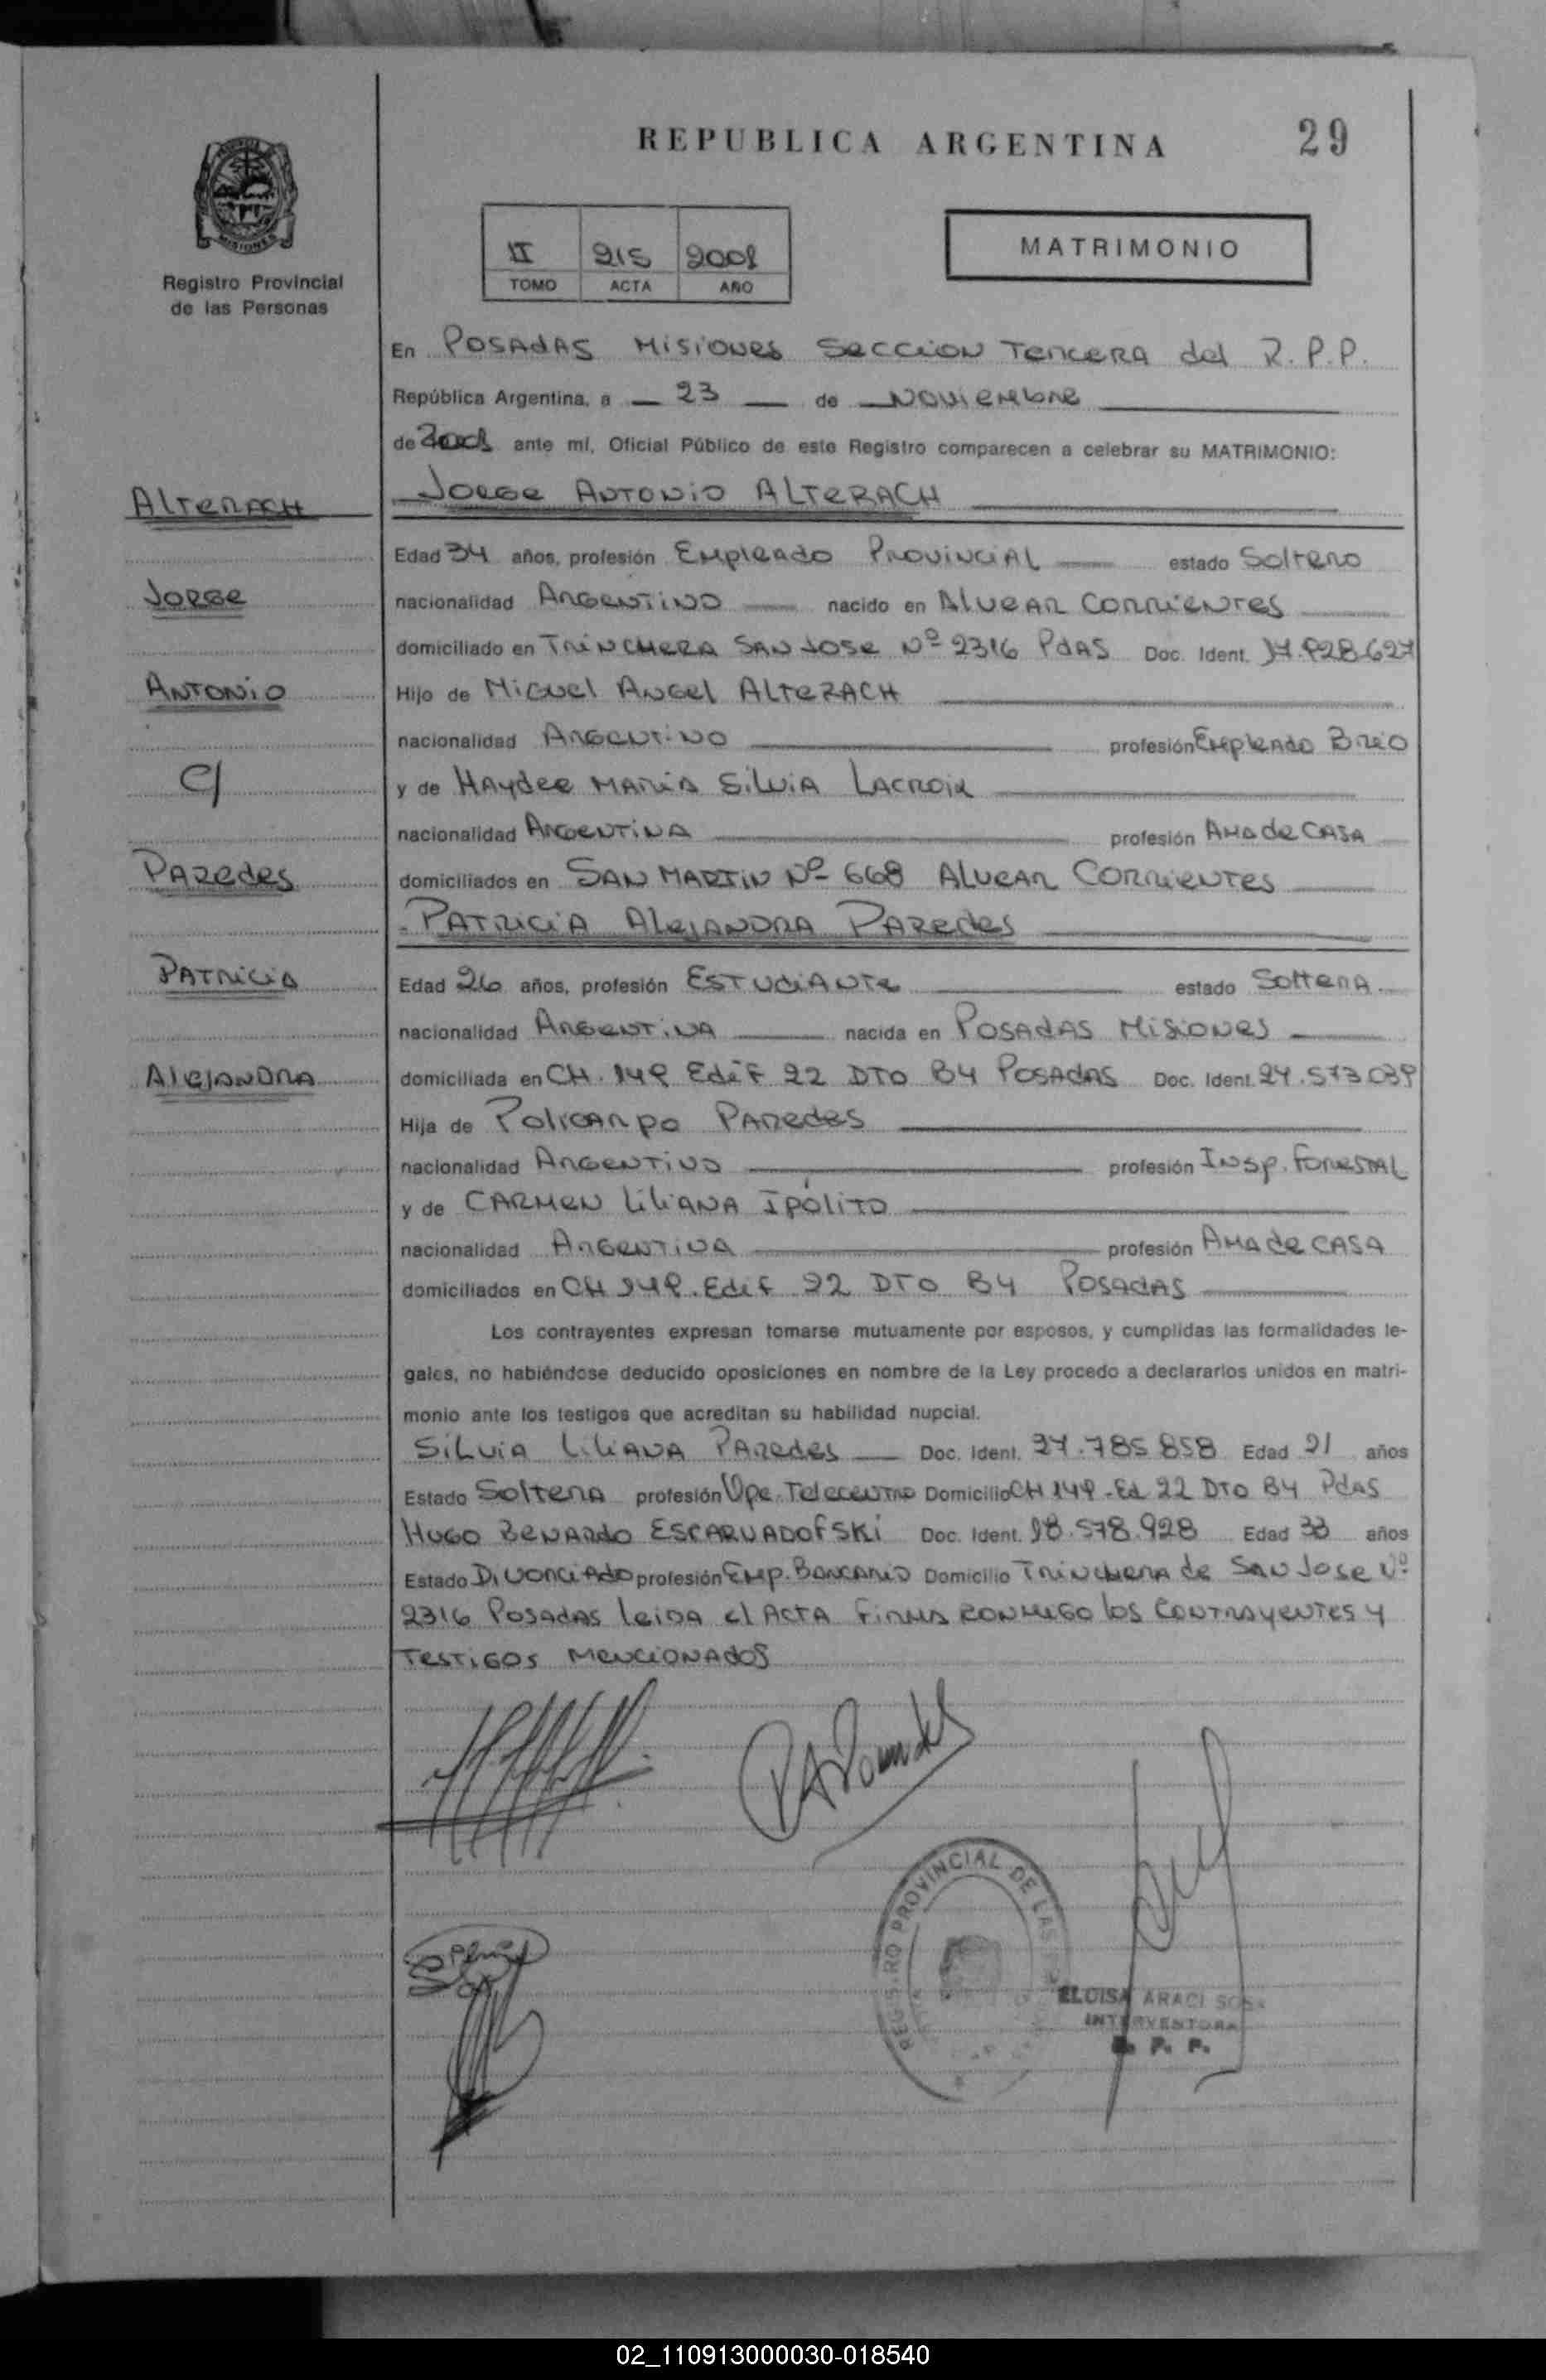 REPUBLICA ARGENTINA
29
MISIONES
Registro Provincial
de las Personas
II 215 2001
TOMO ACTA AÑO
MATRIMONIO
En POSADAS MISIONES SECCION TERCERA del R.P.P.
República Argentina, a 23 de NOVIEMBRE
de 2001 ante mí, Oficial Público de este Registro comparecen a celebrar su MATRIMONIO:
ALTERACH
JORGE ANTONIO ALTERACH
Edad 34 años, profesión EMPLEADO PROVINCIAL estado SOLTERO
JORGE
nacionalidad ARGENTINO nacido en ALVEAR CORRIENTES
domiciliado en TRINCHERA SAN JOSE Nº 2316 PDAS Doc. Ident. 17.928.627
ANTONIO
Hijo de MIGUEL ANGEL ALTERACH
nacionalidad ARGENTINO profesión EMPLEADO
C/
y de HAYDEE MARIA SILVIA LACROIX
nacionalidad ARGENTINA profesión AMA de CASA
PAREDES
domiciliados en SAN MARTIN Nº 668 ALVEAR CORRIENTES
PATRICIA ALEJANDRA PAREDES
PATRICIA
Edad 26 años, profesión ESTUDIANTE estado SOLTERA.
nacionalidad ARGENTINA nacida en POSADAS MISIONES
ALEJANDRA
domiciliada en CH. 149 Edif 22 DTO B4 POSADAS Doc. Ident. 24.573.039
Hija de POLICARPO PAREDES
nacionalidad ARGENTINO profesión INSP. FORESTAL
y de CARMEN LILIANA IPÓLITO
nacionalidad ARGENTINA profesión AMA de CASA
domiciliados en CH 149. Edif 22 DTO B4 POSADAS
Los contrayentes expresan tomarse mutuamente por esposos, y cumplidas las formalidades le-
gales, no habiéndose deducido oposiciones en nombre de la Ley procedo a declararlos unidos en matri-
monio ante los testigos que acreditan su habilidad nupcial.
SILVIA LILIANA PAREDES Doc. Ident. 27.785.858 Edad 21 años
Estado SOLTERA profesión Ope. TELECENTRO Domicilio CH 149 - Ed 22 DTO B4 PDAS
HUGO BENARDO ESCARVADOFSKI Doc. Ident. 18.578.928 Edad 33 años
Estado DIVORCIADO profesión EMP. BANCARIO Domicilio TRINCHERA de SAN JOSE Nº
2316 POSADAS LEIDA el ACTA FIRMA CONMIGO los CONTRAYENTES y
TESTIGOS MENCIONADOS
REGISTRO PROVINCIAL DE LAS
ELOISA ARACI SOSA
INTERVENTORA
R. P. P.
02_110913000030-018540